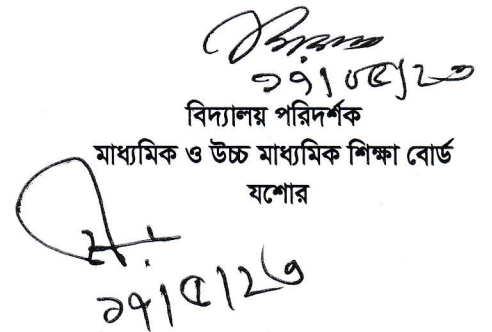 ১৭/০৫/২৩
বিদ্যালয় পরিদর্শক
মাধ্যমিক ও উচ্চ মাধ্যমিক শিক্ষা বোর্ড
যশোর
১৭/৫/২৩